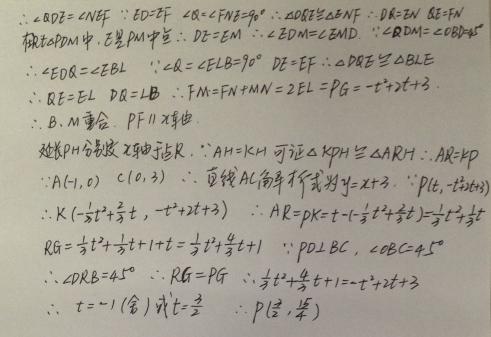 ∴∠QDE=∠NEF ∵ED=EF ∠Q=∠FNE=90° ∴△DQE≌△ENF ∴DQ=EN QE=FN
在Rt△PDM中,E是PM中点 ∴DE=EM ∴∠EDM=∠EMD. ∵∠QDM=∠OBD=45°
∴∠EDQ=∠EBL ∵∠Q=∠ELB=90° DE=EF ∴△DQE≌△BLE
∴QE=EL DQ=LB ∴FM=FN+MN=2EL=PG=-t²+2t+3.
∴B、M重合. PF∥x轴.
延长PH分别交x轴于点R. ∵AH=KH 可证△KPH≌△ARH ∴AR=KP
∵A(-1,0) C(0,3) ∴直线AC解析式为y=x+3. ∵P(t,-t²+2t+3)
∴K(-⅓t²+⅔t, -t²+2t+3) ∴AR=PK=t-(-⅓t²+⅔t)=⅓t²+⅓t
RG=⅓t²+⅓t+1+t=⅓t²+4/3t+1 ∵PD⊥BC, ∠OBC=45°
∴∠DRB=45° ∴RG=PG ∴⅓t²+4/3t+1=-t²+2t+3
∴ t=-1(舍)或t=3/2 ∴P(3/2, 15/4)